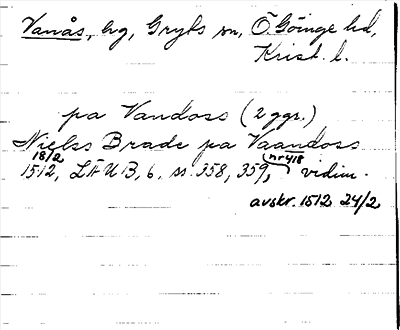 Vanås, hg, Gryts sn, Ö. Göinge hd,
Krist. l.
pa Vandoss (2 ggr.)
Nielss Brade pa Vaandoss
18/2 1512, LÆUB, 6, ss. 358, 359, (nr 418) vidim.
avskr. 1512 24/2